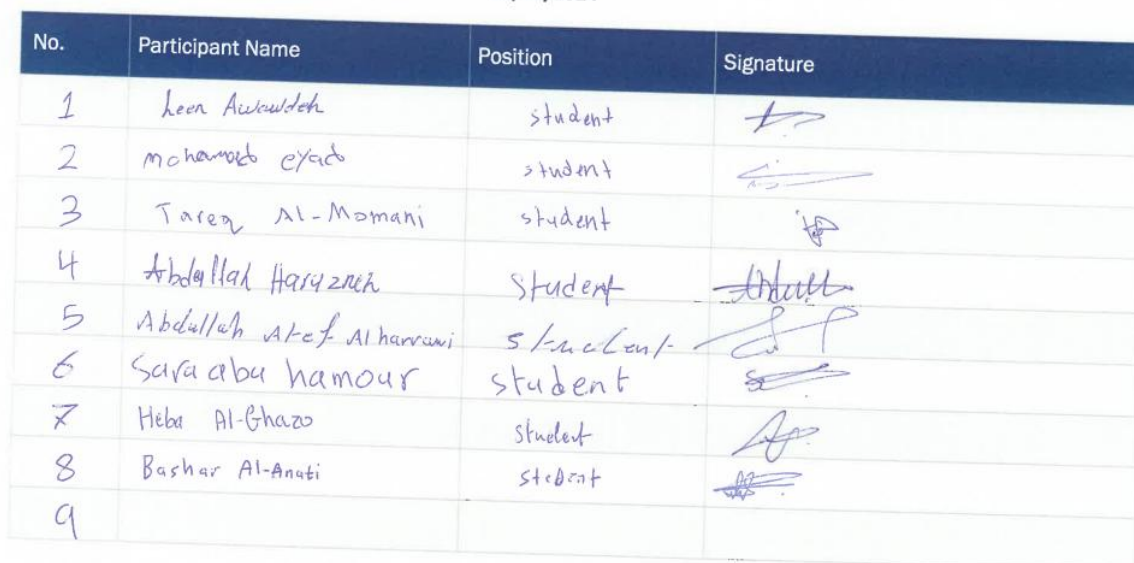 No. Participant Name Position Signature
1 Leen Awawdeh student
2 mohamad eyad student
3 Tareq Al-Momani student
4 Abdallah Harazneh student
5 Abdullah Atef Alharrawi student
6 Sara abu hamour student
7 Heba Al-Ghazo student
8 Bashar Al-Anati student
9